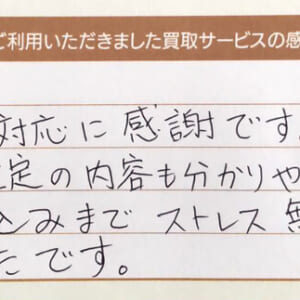 ご利用いただきました買取サービスの感
対応に感謝です。
定の内容も分かりや
込みまでストレス無
たです。